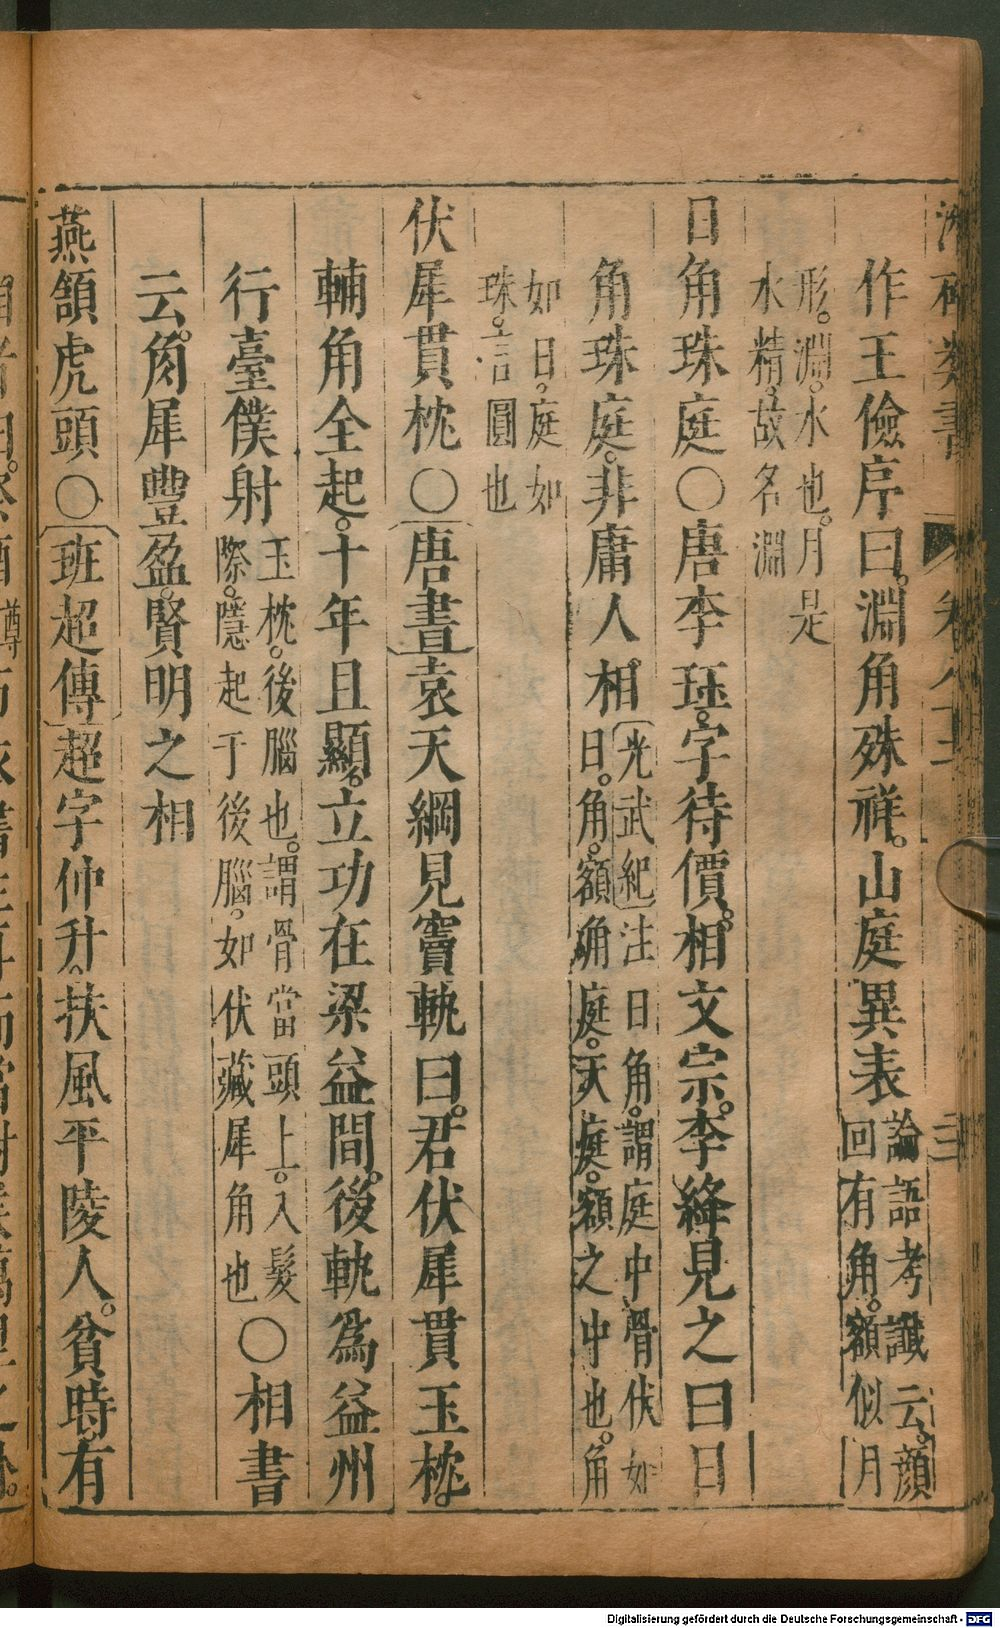 作王儉序曰淵角殊祥山庭異表論語考讖云顔回有角額似月
形淵水也月是水精故名淵
日角珠庭○唐李珏字待價相文宗李絳見之曰日
角珠庭非庸人相光武紀注日角謂庭中骨伏如日角額角庭天庭額之中也角
如日庭如珠言圓也
伏犀貫枕○唐書袁天綱見竇軌曰君伏犀貫玉枕
輔角全起十年且顯立功在梁益間後軌爲益州
行臺僕射玉枕後腦也謂骨當頭上入髮際隱起于後腦如伏藏犀角也○相書
云角犀豐盈賢明之相
燕頷虎頭○班超傳超字仲升扶風平陵人貧時有
Digitalisierung gefördert durch die Deutsche Forschungsgemeinschaft - DFG